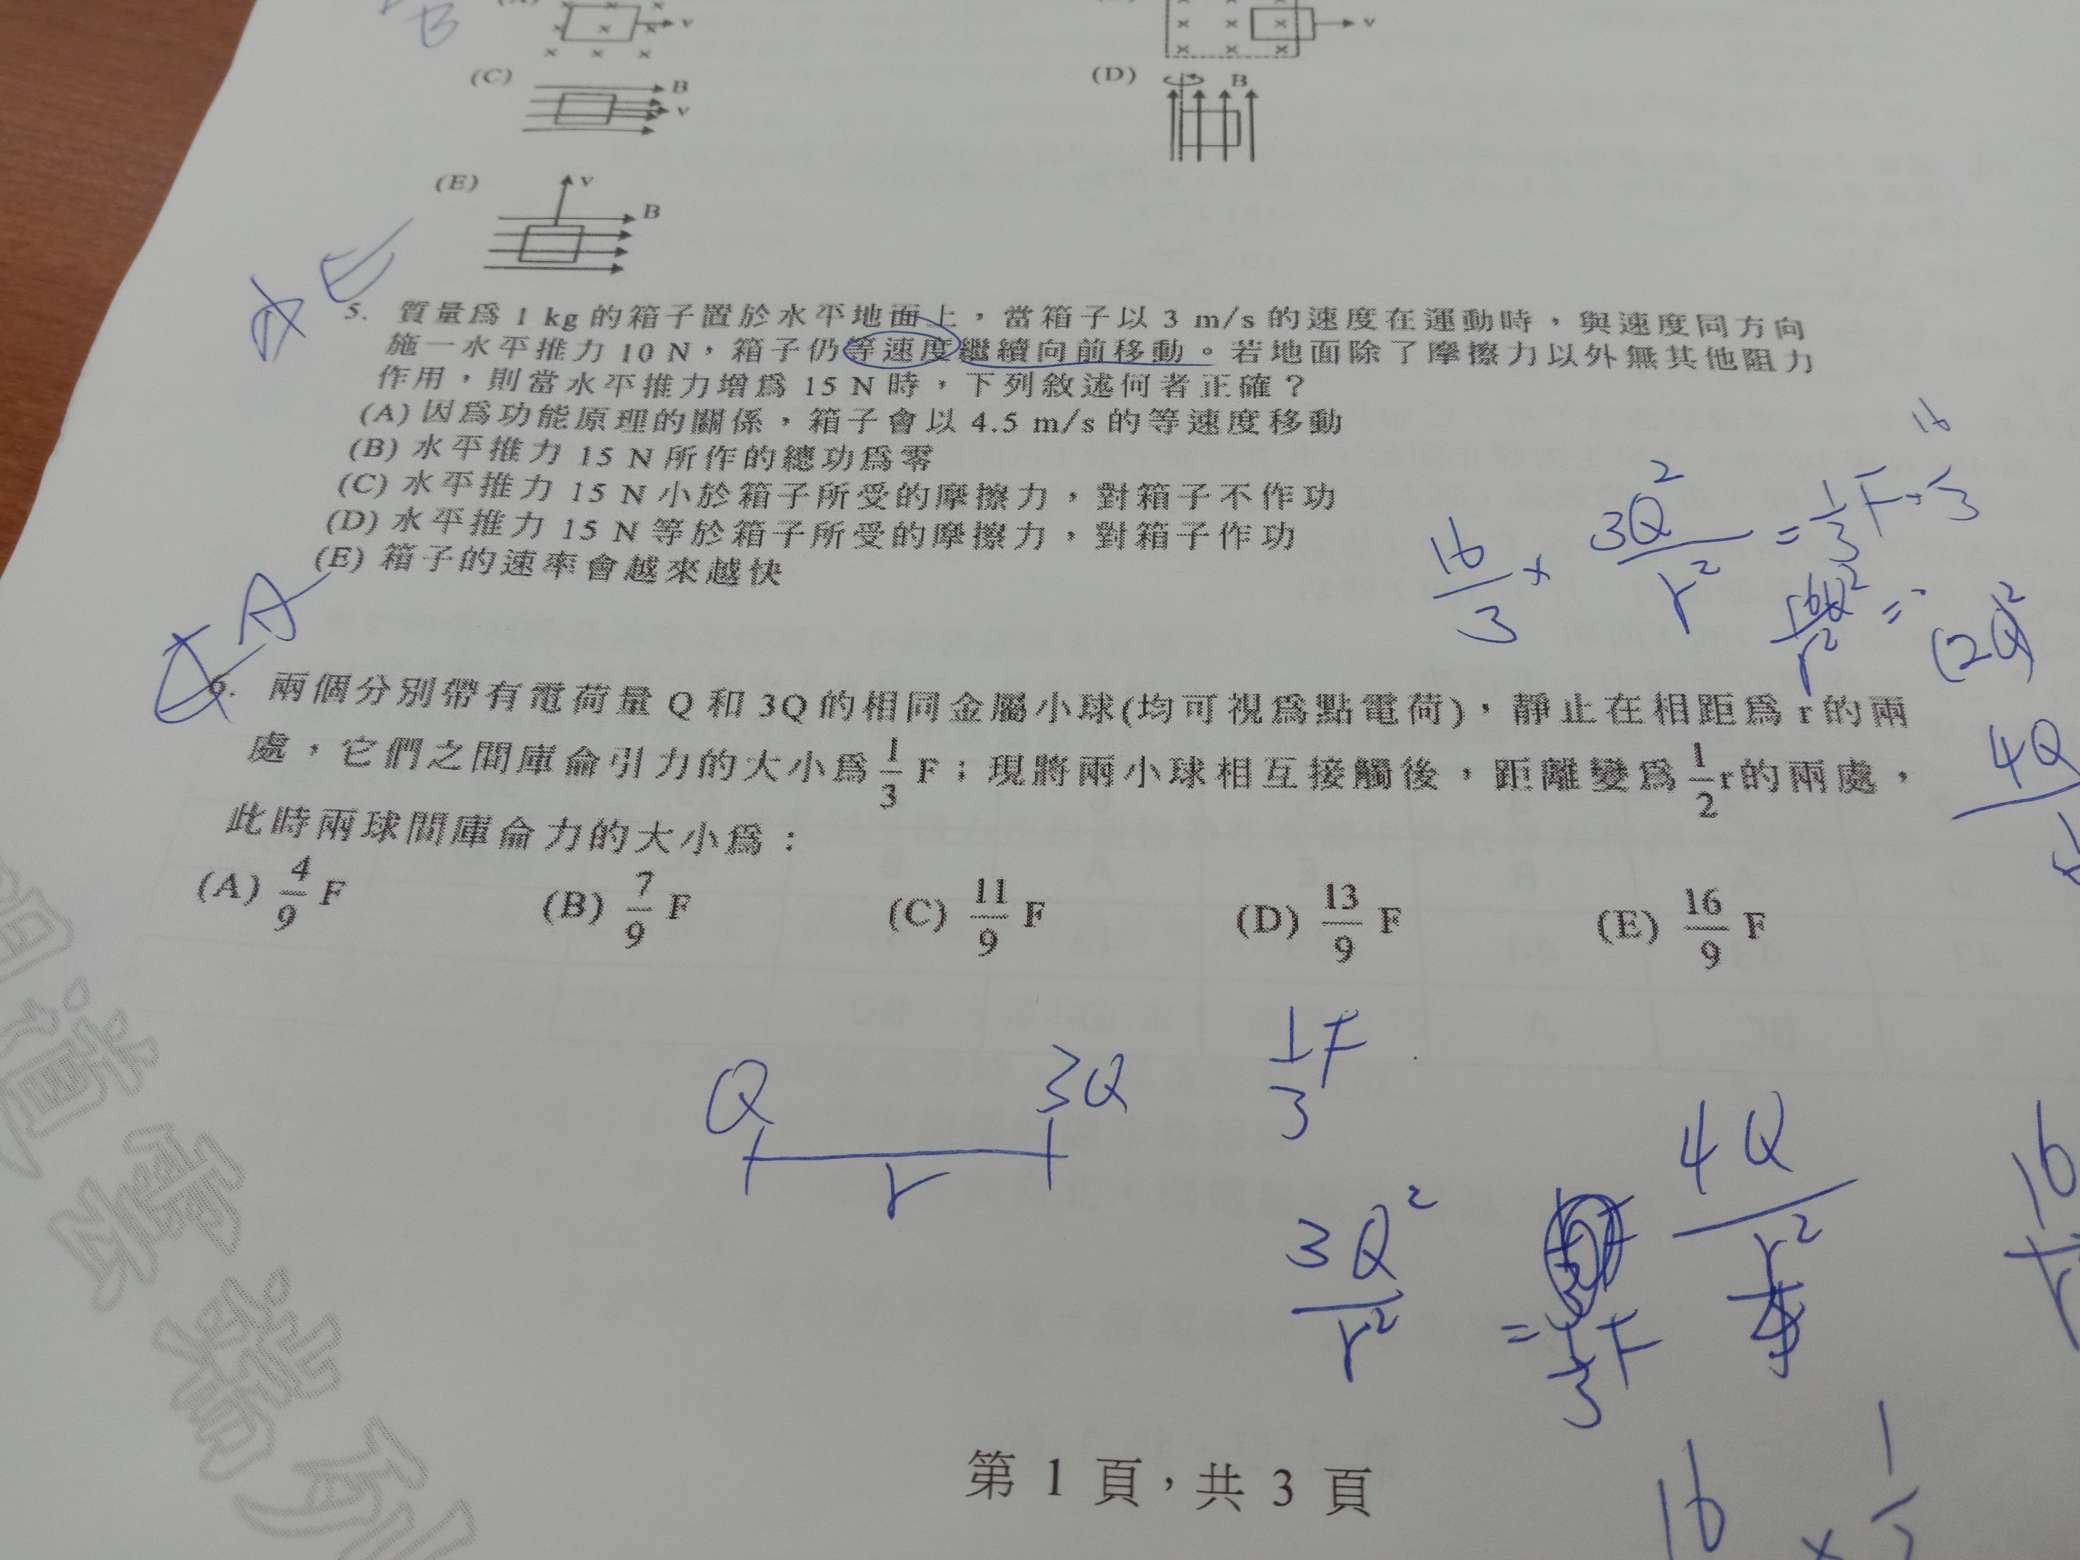 B
v
v
(C)
B
v
(D)
B
(E)
v
B
E
5. 質量為 1 kg 的箱子置於水平地面上，當箱子以 3 m/s 的速度在運動時，與速度同方向
施一水平推力 10 N，箱子仍等速度繼續向前移動。若地面除了摩擦力以外無其他阻力
作用，則當水平推力增為 15 N 時，下列敘述何者正確？
(A) 因為功能原理的關係，箱子會以 4.5 m/s 的等速度移動
(B) 水平推力 15 N 所作的總功為零
(C) 水平推力 15 N 小於箱子所受的摩擦力，對箱子不作功
(D) 水平推力 15 N 等於箱子所受的摩擦力，對箱子作功
(E) 箱子的速率會越來越快
16
16/3 × 3Q²/r² = 1/3 F
16Q²/r² =
(2Q)²
A
6. 兩個分別帶有電荷量 Q 和 3Q 的相同金屬小球(均可視為點電荷)，靜止在相距為 r 的兩
處，它們之間庫侖引力的大小為 1/3 F；現將兩小球相互接觸後，距離變為 1/2 r 的兩處，
此時兩球間庫侖力的大小為：
4Q
(A) 4/9 F (B) 7/9 F (C) 11/9 F (D) 13/9 F (E) 16/9 F
Q 3Q
r
1/3 F
3Q²/r² = 1/3 F
4Q
r²
16
r
第 1 頁，共 3 頁
16 ×